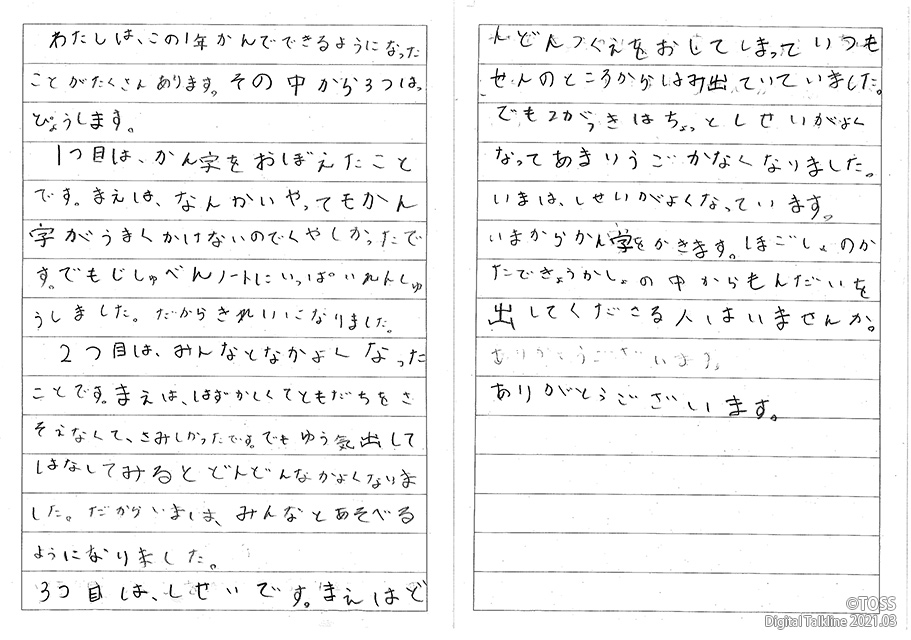 わたしは、この1年かんでできるようになった
ことがたくさんあります。その中から3つはっ
ぴょうします。
1つ目は、かん字をおぼえたこと
です。まえは、なんかいやってもかん
字がうまくかけないのでくやしかったで
す。でもじしゅべんノートにいっぱいれんしゅ
うしました。だからきれいになりました。
2つ目は、みんなとなかよくなった
ことです。まえは、はずかしくてともだちをさ
そえなくて、さみしかったです。でもゆう気出して
はなしてみるとどんどんなかよくなりま
した。だからいまは、みんなとあそべる
ようになりました。
3つ目は、しせいです。まえはど
んどんつくえをおしてしまっていつも
せんのところからはみ出ていていました。
でも2がっきはちょっとしせいがよく
なってあまりうごかなくなりました。
いまは、しせいがよくなっています。
いまからかん字をかきます。ほごしゃのか
たできょうかしょの中からもんだいを
出してくださる人はいませんか。
ありがとうございます。
ありがとうございます。
©TOSS
Digital Talkline 2021.03